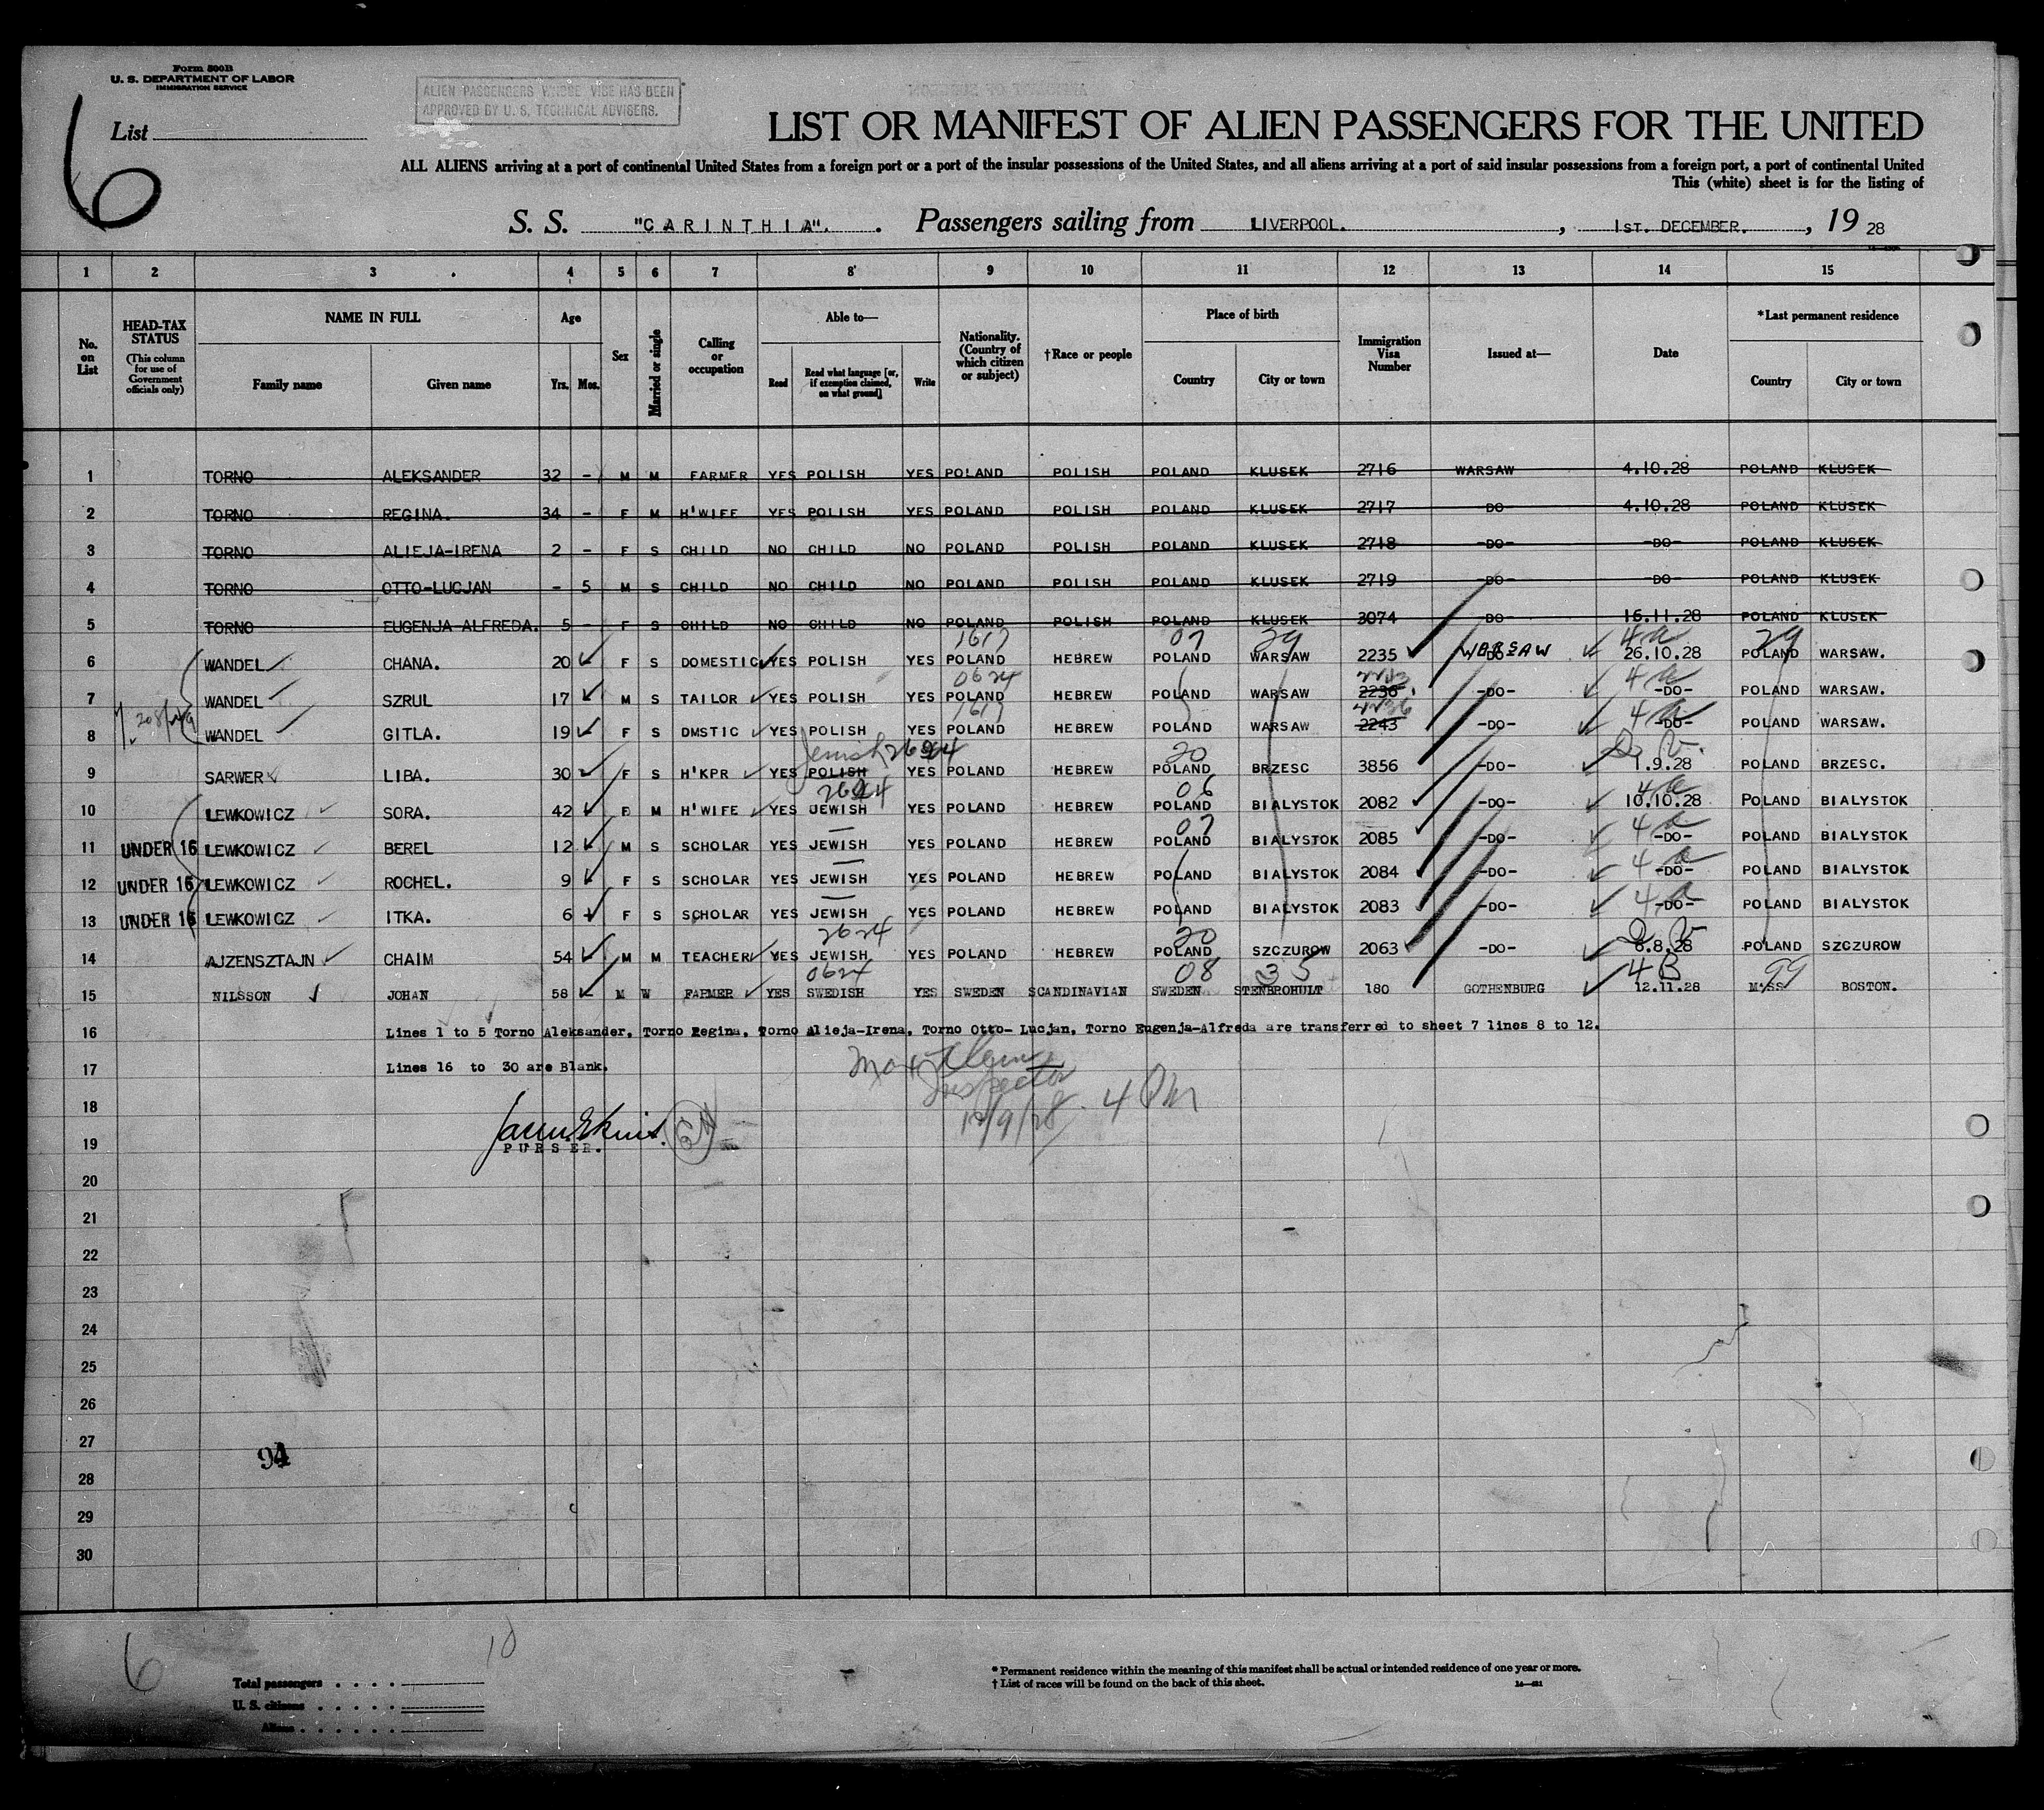 Form 500B
U. S. DEPARTMENT OF LABOR
IMMIGRATION SERVICE
ALIEN PASSENGERS WHOSE VISE HAS BEEN
APPROVED BY U. S. TECHNICAL ADVISERS.
6
List
LIST OR MANIFEST OF ALIEN PASSENGERS FOR THE UNITED
ALL ALIENS arriving at a port of continental United States from a foreign port or a port of the insular possessions of the United States, and all aliens arriving at a port of said insular possessions from a foreign port, a port of continental United
This (white) sheet is for the listing of
S. S. "CARINTHIA". Passengers sailing from LIVERPOOL. , 1ST. DECEMBER. , 19 28
1 2 3 4 5 6 7 8 9 10 11 12 13 14 15
No. on List HEAD-TAX STATUS (This column for use of Government officials only) NAME IN FULL Family name Given name Age Yrs. Mos. Sex Married or single Calling or occupation Able to— Read Read what language [or, if exemption claimed, on what ground] Write Nationality. (Country of which citizen or subject) †Race or people Place of birth Country City or town Immigration Visa Number Issued at— Date *Last permanent residence Country City or town
1 TORNO ALEKSANDER 32 - M M FARMER YES POLISH YES POLAND POLISH POLAND KLUSEK 2716 WARSAW 4.10.28 POLAND KLUSEK
2 TORNO REGINA. 34 - F M H'WIFE YES POLISH YES POLAND POLISH POLAND KLUSEK 2717 -DO- 4.10.28 POLAND KLUSEK
3 TORNO ALIEJA-IRENA 2 - F S CHILD NO CHILD NO POLAND POLISH POLAND KLUSEK 2718 -DO- -DO- POLAND KLUSEK
4 TORNO OTTO-LUCJAN - 5 M S CHILD NO CHILD NO POLAND POLISH POLAND KLUSEK 2719 -DO- -DO- POLAND KLUSEK
5 TORNO EUGENJA-ALFREDA. 5 - F S CHILD NO CHILD NO POLAND POLISH POLAND KLUSEK 3074 -DO- 16.11.28 POLAND KLUSEK
1617 07 29 4a 29
6 WANDEL CHANA. 20 F S DOMESTIC YES POLISH YES POLAND HEBREW POLAND WARSAW 2235 WARSAW 26.10.28 POLAND WARSAW.
0624 2243 4a
7 WANDEL SZRUL 17 M S TAILOR YES POLISH YES POLAND HEBREW POLAND WARSAW 2236 -DO- -DO- POLAND WARSAW.
1617 2236 4a
8 WANDEL GITLA. 19 F S DMSTIC YES POLISH YES POLAND HEBREW POLAND WARSAW 2243 -DO- -DO- POLAND WARSAW.
Jewish 20
9 SARWER LIBA. 30 F S H'KPR YES POLISH YES POLAND HEBREW POLAND BRZESC 3856 -DO- 1.9.28 POLAND BRZESC.
2624 06 4a
10 LEWKOWICZ SORA. 42 F M H'WIFE YES JEWISH YES POLAND HEBREW POLAND BIALYSTOK 2082 -DO- 10.10.28 POLAND BIALYSTOK
07 4a
11 UNDER 16 LEWKOWICZ BEREL 12 M S SCHOLAR YES JEWISH YES POLAND HEBREW POLAND BIALYSTOK 2085 -DO- -DO- POLAND BIALYSTOK
4a
12 UNDER 16 LEWKOWICZ ROCHEL. 9 F S SCHOLAR YES JEWISH YES POLAND HEBREW POLAND BIALYSTOK 2084 -DO- -DO- POLAND BIALYSTOK
4a
13 UNDER 16 LEWKOWICZ ITKA. 6 F S SCHOLAR YES JEWISH YES POLAND HEBREW POLAND BIALYSTOK 2083 -DO- -DO- POLAND BIALYSTOK
2624 20
14 AJZENSZTAJN CHAIM 54 M M TEACHER YES JEWISH YES POLAND HEBREW POLAND SZCZUROW 2063 -DO- 8.8.28 POLAND SZCZUROW
0624 08 35 4B 99
15 NILSSON JOHAN 58 M W FARMER YES SWEDISH YES SWEDEN SCANDINAVIAN SWEDEN STENBROHULT 180 GOTHENBURG 12.11.28 MASS BOSTON.
16 Lines 1 to 5 Torno Aleksander, Torno Regina, Torno Alieja-Irena, Torno Otto- Lucjan, Torno Eugenja-Alfreda are transferred to sheet 7 lines 8 to 12.
17 Lines 16 to 30 are Blank.
Inspector
18
12/9/28. 4 PM
19 PURSER.
20
21
22
23
24
25
26
27
94
28
29
30
6 10
Total passengers
U. S. citizens
Aliens
* Permanent residence within the meaning of this manifest shall be actual or intended residence of one year or more.
† List of races will be found on the back of this sheet.